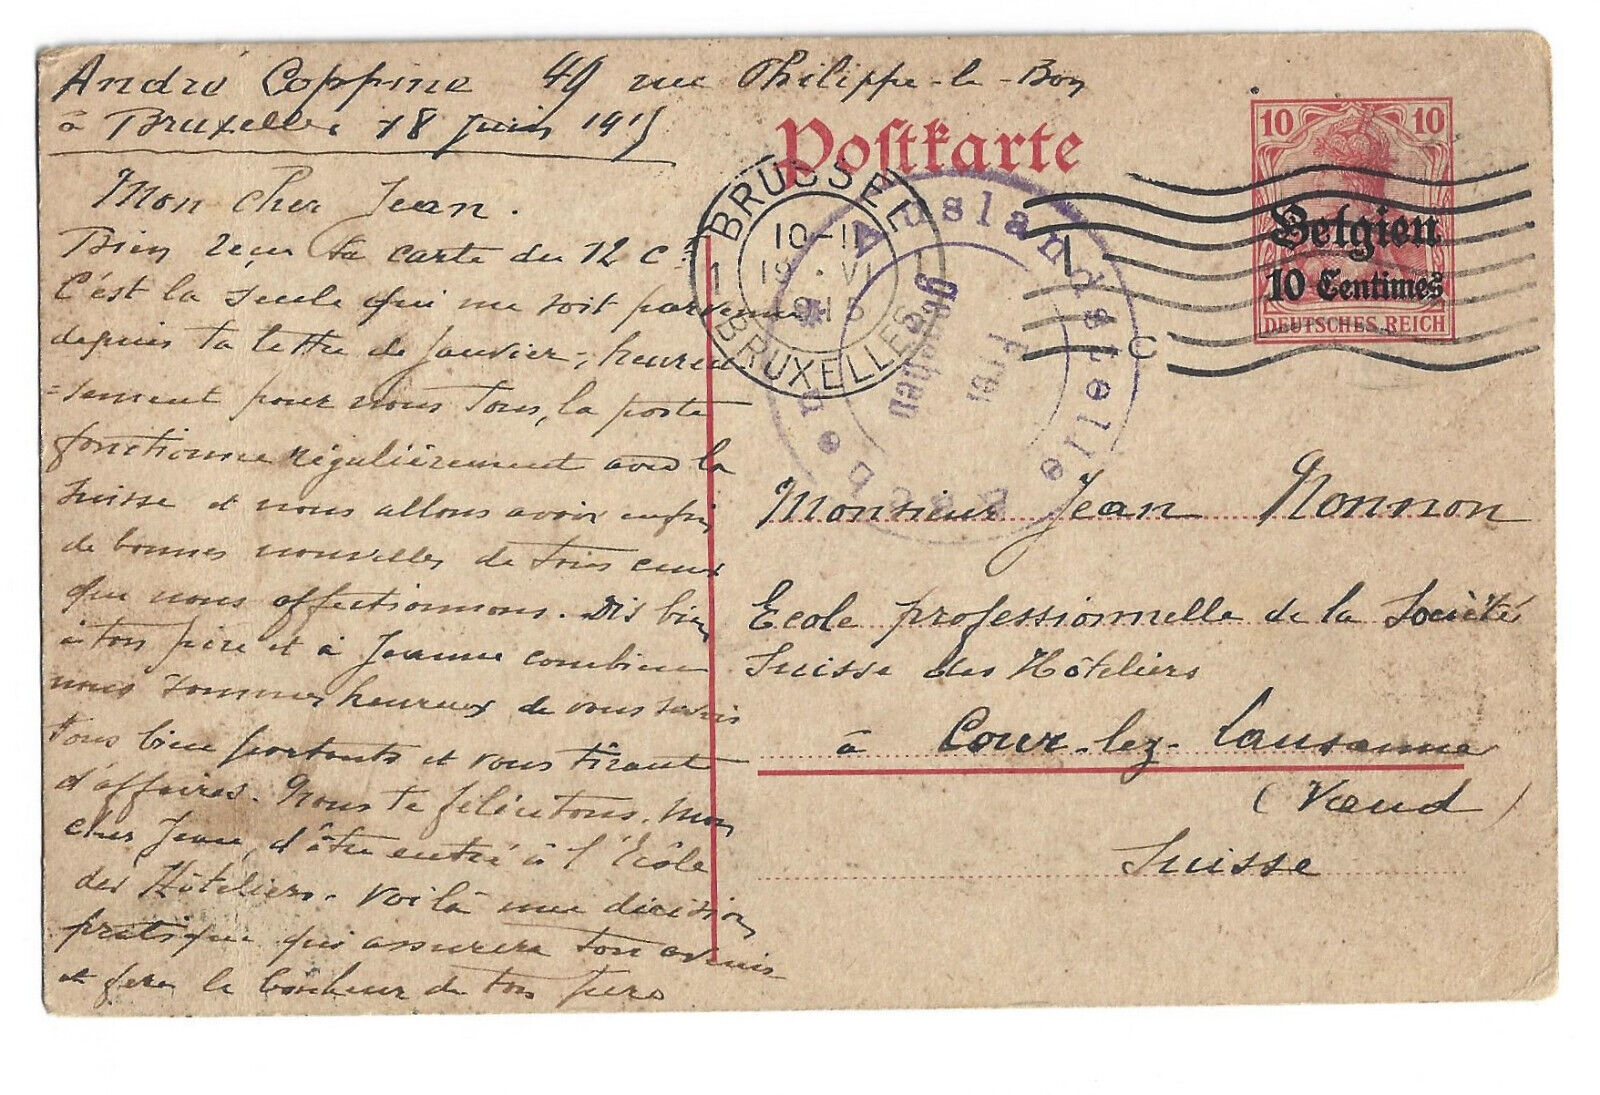 André Coppine 49 rue Philippe-le-Bon
à Bruxelles 18 juin 1915
Mon cher Jean.
Bien reçu ta carte du 12 Ct
C'est la seule qui me soit parvenue
depuis ta lettre de Janvier, heureu
=sement pour nous tous, la poste
fonctionne régulièrement avec la
Suisse et nous allons avoir enfin
de bonnes nouvelles de tous ceux
que nous affectionnons. Dis bien
à ton père et à Jeanne combien
nous sommes heureux de vous savoir
tous bien portants et vous tirant
d'affaires. Nous te félicitons, mon
cher Jean, d'être entré à l'Ecôle
des Hôteliers. Voilà une décision
pratique qui assurera ton avenir
et fera le bonheur de ton père
Postkarte
10 10
Belgien
10 Centimes
DEUTSCHES REICH
BRUSSEL
10-11
19 VI
1915
1 BRUXELLES
C
Auslandsstelle
Frei
gegeben
Monsieur Jean Nonnon
Ecole professionnelle de la Société
Suisse des Hôteliers
à Cour-lez-Lausanne
(Vaud)
Suisse